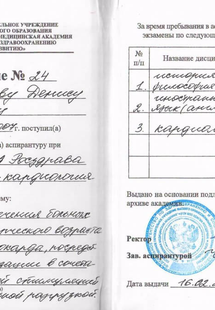 ЛЬНОЕ УЧРЕЖДЕНИЕ
НОГО ОБРАЗОВАНИЯ
МЕДИЦИНСКАЯ АКАДЕМИЯ
ЗДРАВООХРАНЕНИЮ
ЗВИТИЮ»
ие № 24
ву Денису
г. поступил(а)
) аспирантуру при
Росздрава
кардиология
му:
чения больных
ческого возраста
карда, посред
ации в сочета
стимуляцией
ной нагрузкой.
За время пребывания в а
экзамены по следующ
№ п/п
Название дисц
история
1. философия
иностранн
2. язык (англ
3. кардиоло
Выдано на основании подл
архиве академии.
Ректор
Зав. аспирантурой
Дата выдачи 16.02.